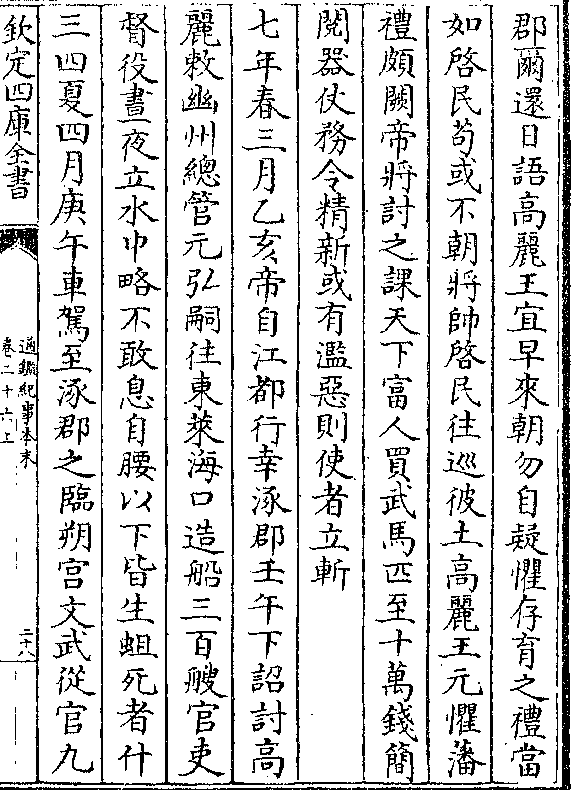 郡爾還日語高麗王宜早來朝勿自疑懼存育之禮當
如啓民苟或不朝將帥啓民往巡彼土高麗王元懼藩
禮頗闕帝將討之課天下富人買武馬匹至十萬錢簡
閱器仗務令精新或有濫惡則使者立斬
七年春三月乙亥帝自江都行幸涿郡壬午下詔討高
麗敕幽州總管元弘嗣往東萊海口造船三百艘官吏
督役晝夜立水中略不敢息自腰以下皆生蛆死者什
三四夏四月庚午車駕至涿郡之臨朔宫文武從官九
欽定四庫全書
通鑑紀事本末
卷二十六上
二十八